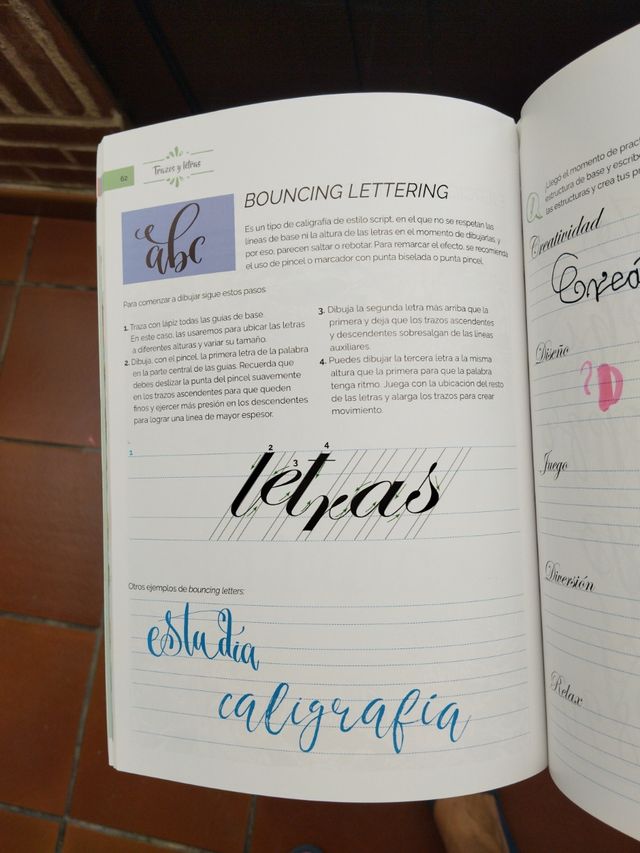 62
Trazos y letras
abc
BOUNCING LETTERING
Es un tipo de caligrafía de estilo script, en el que no se respetan las
líneas de base ni la altura de las letras en el momento de dibujarlas, y
por eso, parecen saltar o rebotar. Para remarcar el efecto, se recomienda
el uso de pincel o marcador con punta biselada o punta pincel.
Para comenzar a dibujar sigue estos pasos:
1. Traza con lápiz todas las guías de base.
En este caso, las usaremos para ubicar las letras
a diferentes alturas y variar su tamaño.
2. Dibuja, con el pincel, la primera letra de la palabra
en la parte central de las guías. Recuerda que
debes deslizar la punta del pincel suavemente
en los trazos ascendentes para que queden
finos y ejercer más presión en los descendentes
para lograr una línea de mayor espesor.
3. Dibuja la segunda letra más arriba que la
primera y deja que los trazos ascendentes
y descendentes sobresalgan de las líneas
auxiliares.
4. Puedes dibujar la tercera letra a la misma
altura que la primera para que la palabra
tenga ritmo. Juega con la ubicación del resto
de las letras y alarga los trazos para crear
movimiento.
1
2
3
4
letras
Otros ejemplos de bouncing letters:
estudia
caligrafía
¡Llegó el momento de
estructura de base y
las estructuras y crea tus
Creatividad
Diseño
D
Juego
Diversión
Relax